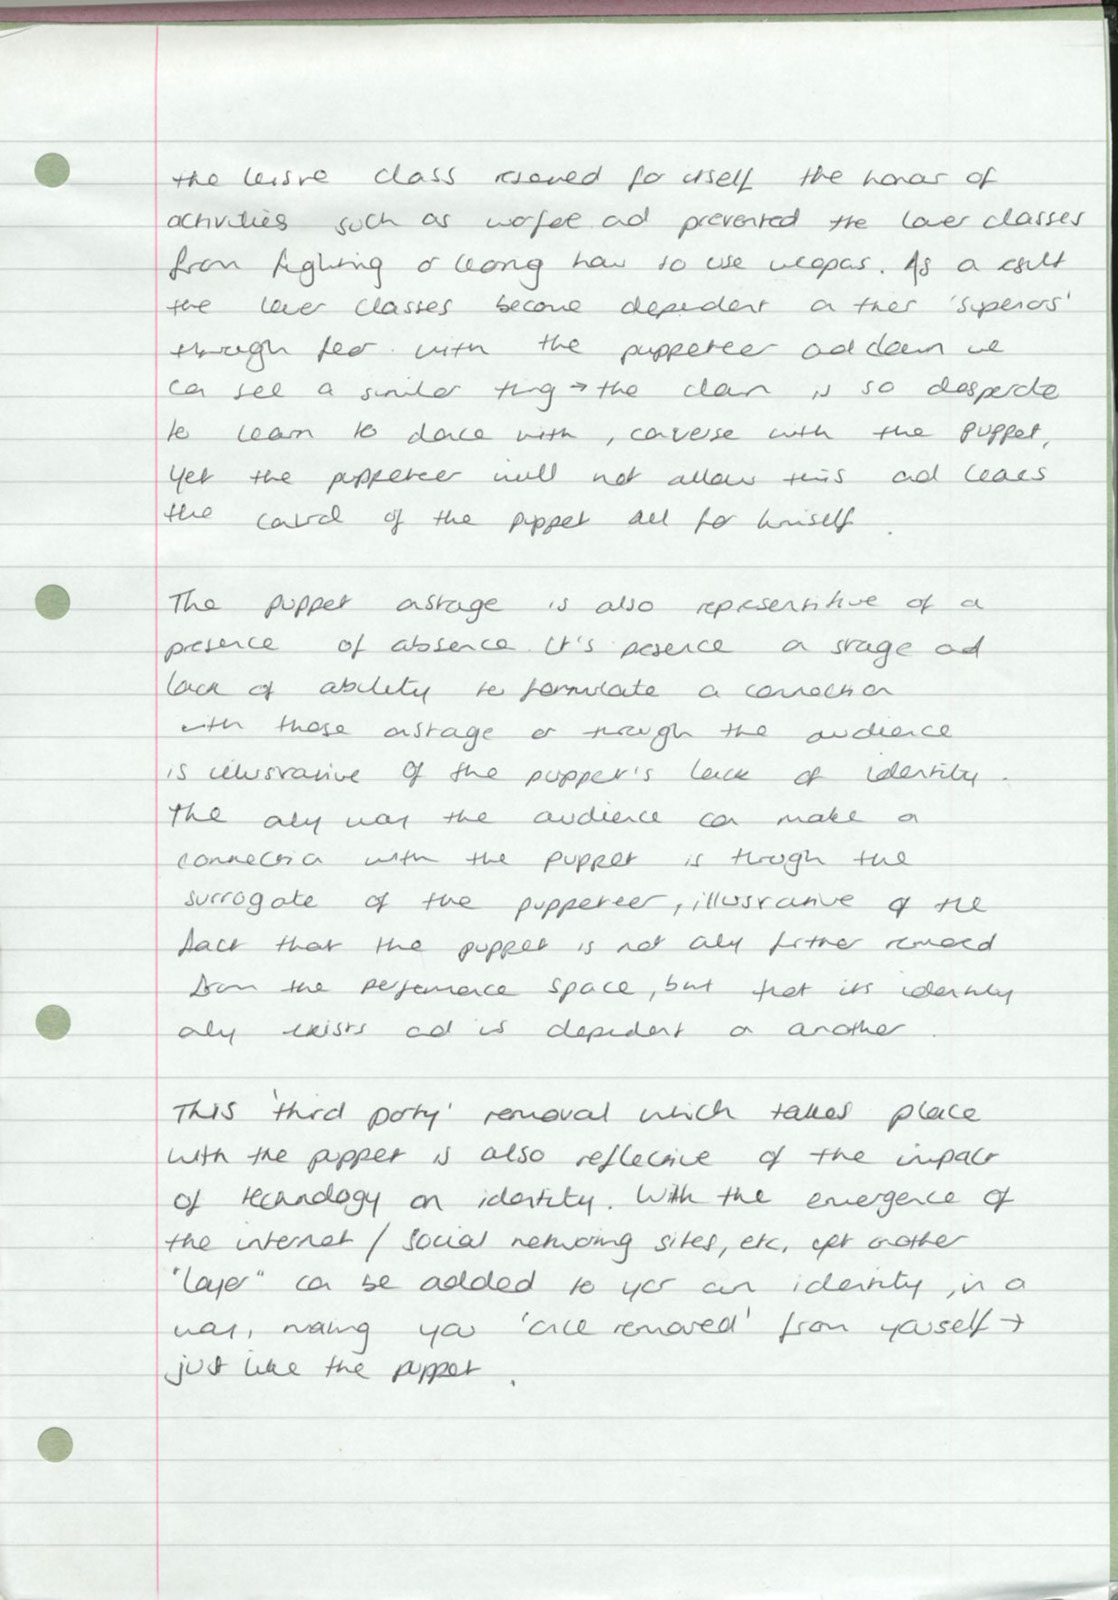 the leisure class reserved for itself the honor of
activities such as warfare and prevented the lower classes
from fighting or learning how to use weapons. As a result
the lower classes become dependent on their 'superiors'
through fear. with the puppeteer and clown we
can see a similar thing → the clown is so desperate
to learn to dance with, converse with the puppet,
yet the puppeteer will not allow this and leaves
the control of the puppet all for himself.
The puppet onstage is also representitive of a
presence of absence. It's presence on stage and
lack of ability to formulate a connection
with those onstage or through the audience
is illustrative of the puppet's lack of identity.
The only way the audience can make a
connection with the puppet is through the
surrogate of the puppeteer, illustrative of the
fact that the puppet is not only further removed
from the performance space, but that its identity
only exists and is dependent on another.
This 'third party' removal which takes place
with the puppet is also reflective of the impact
of technology on identity. With the emergence of
the internet / social networking sites, etc. yet another
"layer" can be added to your own identity, in a
way, making you 'once removed' from yourself →
just like the puppet.